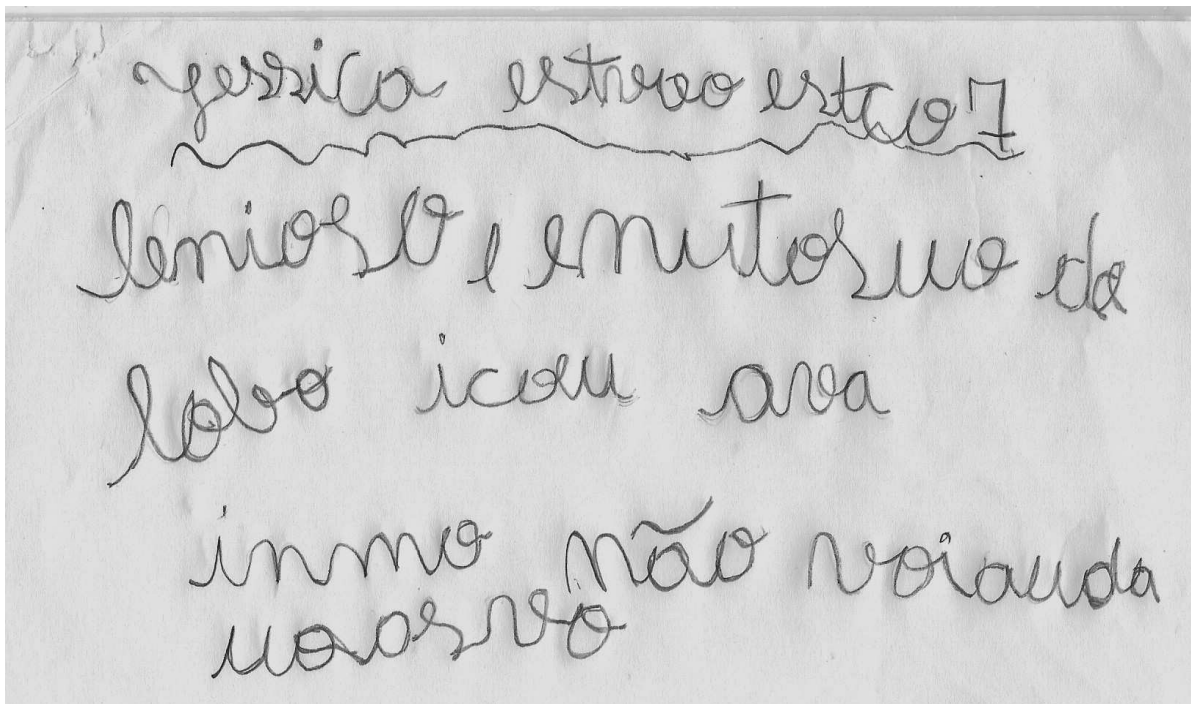 yessica estrao estço 1
leniosO, enutosuo da
lobo icou ava
inmo não voiauda
uoosvo